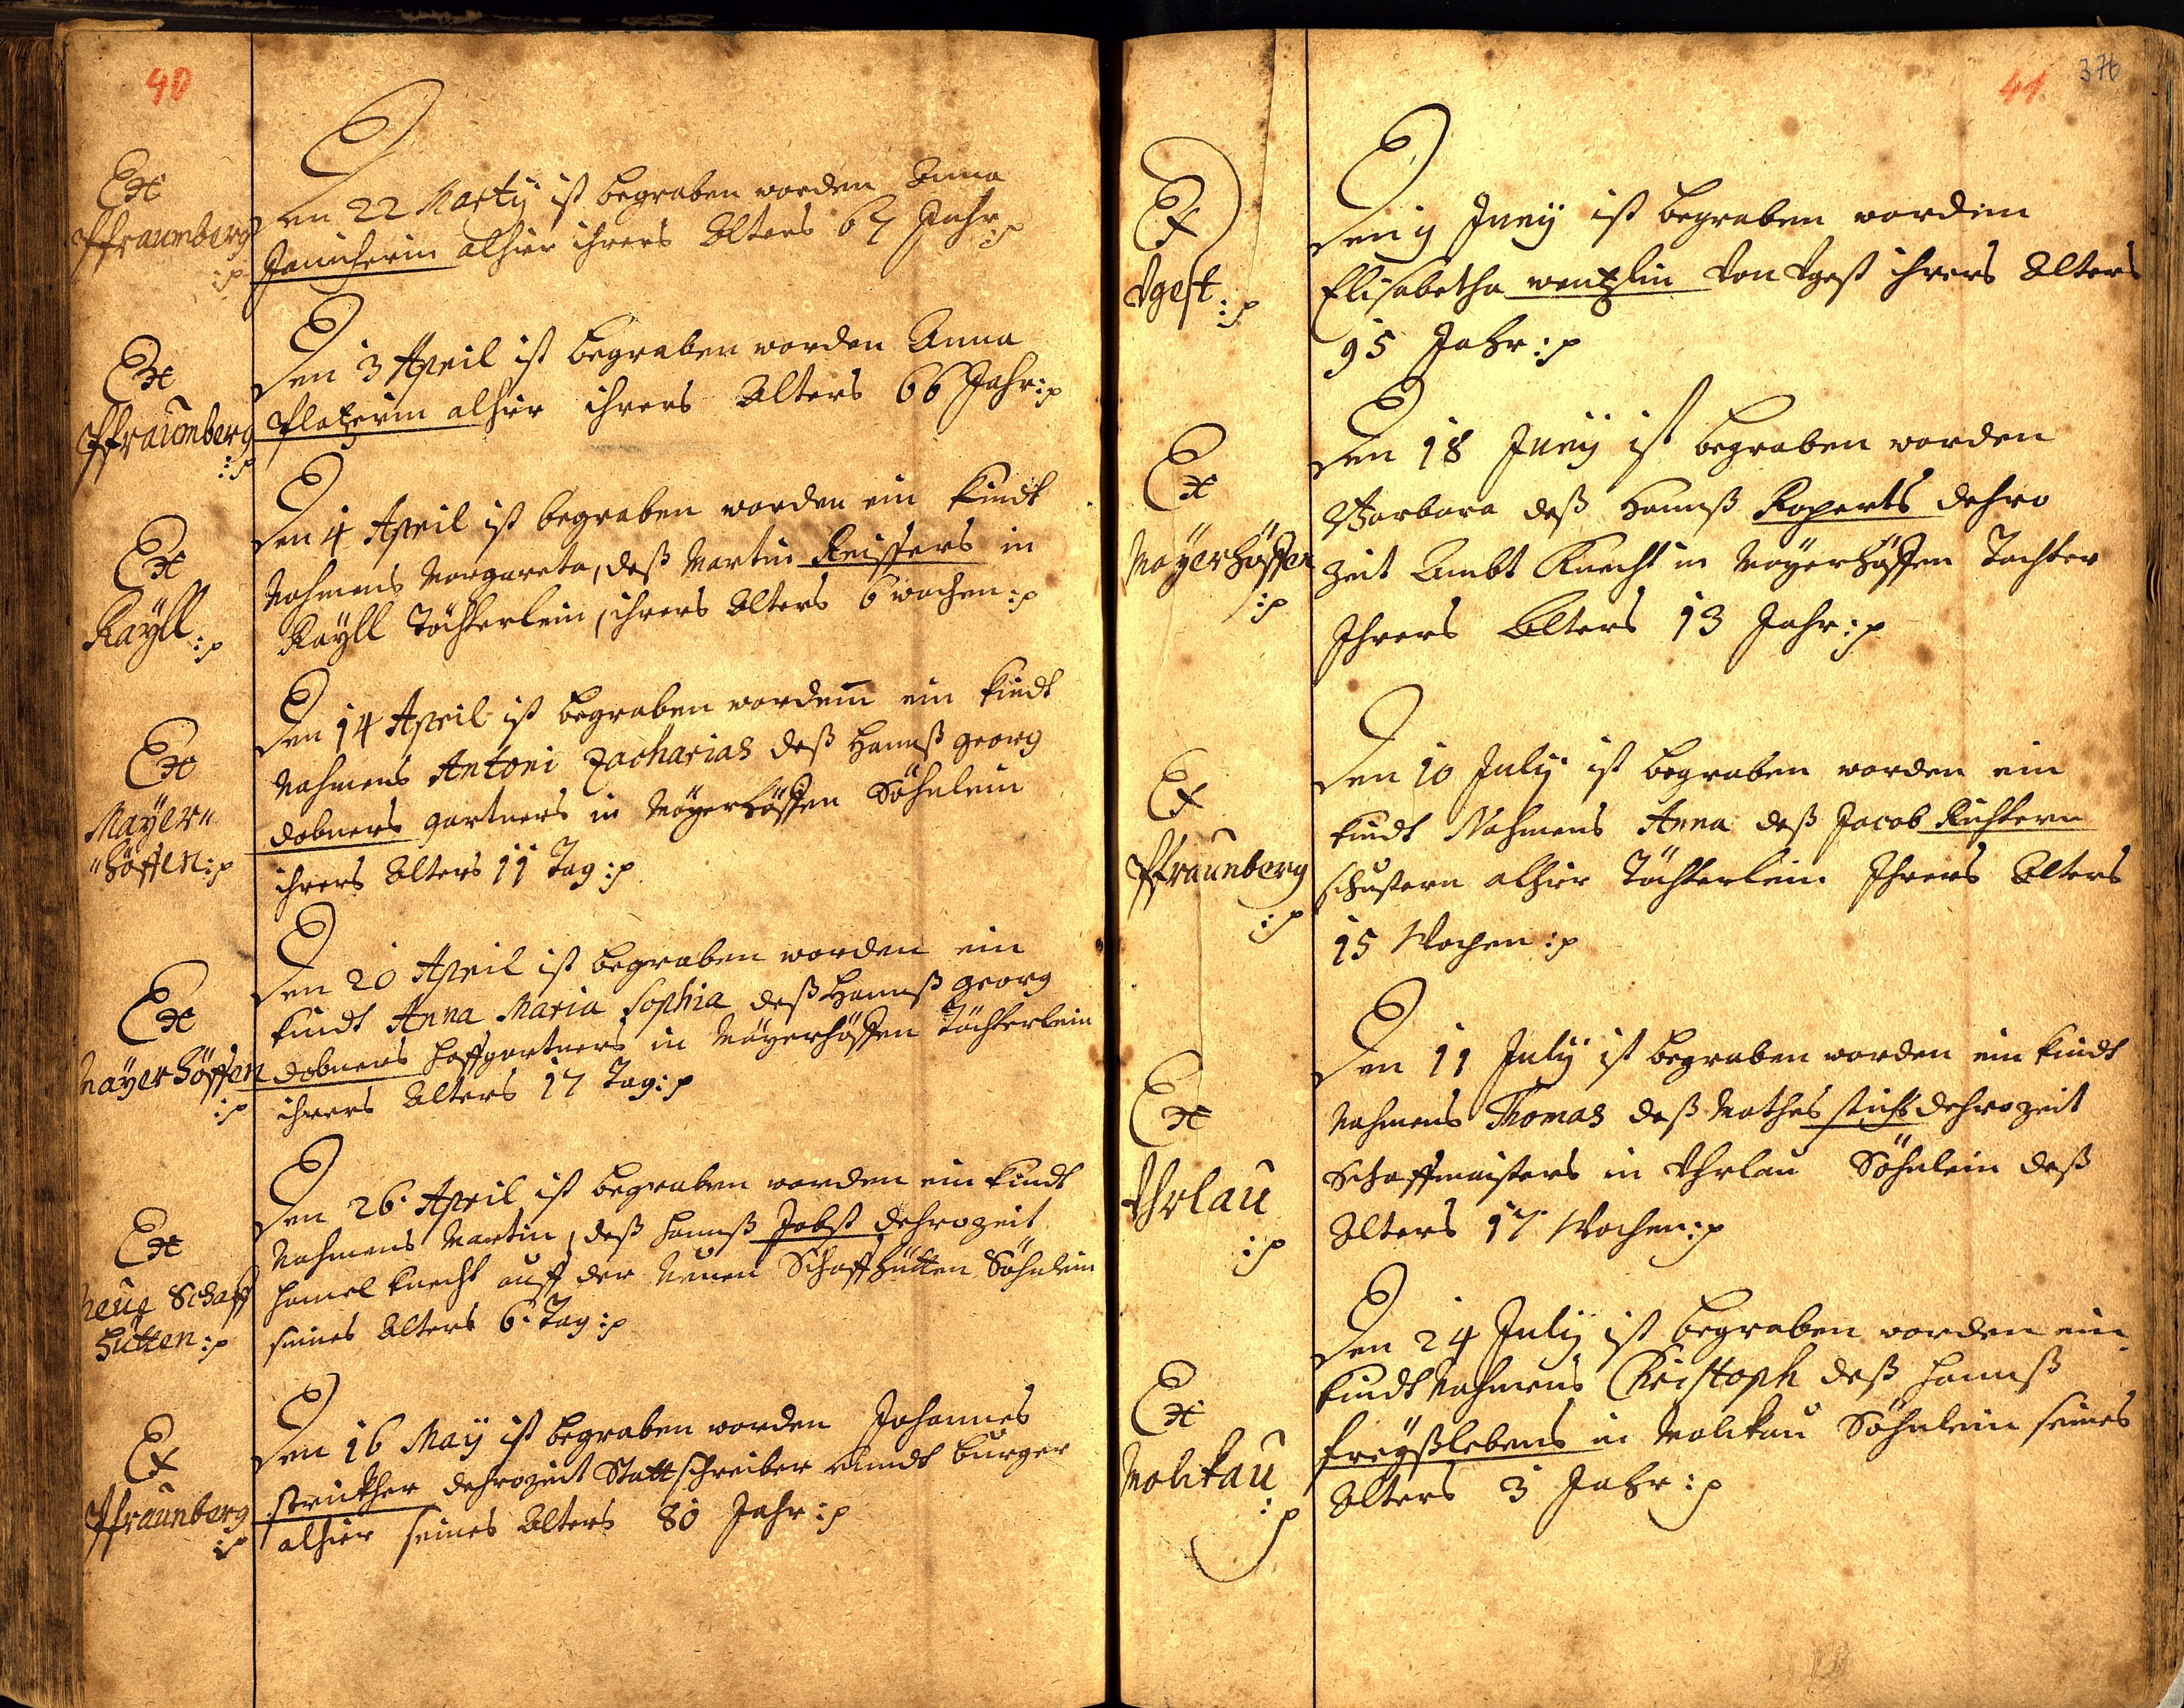 40
Ex
Pfraumberg
:p
Den 22 Martÿ ist begraben worden Anna
alhier ihrers Alters 67 Jahr:p
Ex
Pfraumberg
:p
Den 3 April ist begraben worden Anna
Plazerin alhier ihrers Alters 66 Jahr:p
Ex
Raÿll:p
Den 4 April ist begraben worden ein Kindt
Nahmens Margareta, deß Martin Reissers in
Raÿll Töchterlein, ihrers Alters 6 wochen:p
Ex
Mayer〃
〃höffen:p
Den 14 April ist begraben worden ein Kindt
Nahmens Antoni Zacharias deß Hannß Georg
dobners gartners in Mayerhöffen Söhnlein
ihrers Alters 11 Tag:p
Ex
Mayerhöffen
:p
Den 20 April ist begraben worden ein
Kindt Anna Maria Sophia deß Hannß Georg
dobners hoffgartners in Mayerhöffen Töchterlein
ihrers Alters 17 Tag:p
Ex
Neüe Schaff
hütten:p
Den 26 April ist begraben worden ein Kindt
Nahmens Martin, deß Hannß Jobst dehrozeit
hamel Knecht auff der Neuen Schaffhütten Söhnlein
seines Alters 6 Tag:p
Ex
Pfraunberg
:p
Den 16 Maÿ ist begraben worden Johannes
strickher dehrozeit Stattschreiber undt burger
alhier seines Alters 80 Jahr:p
41
376
Ex
Vgest:p
Den 9 Junÿ ist begraben worden
Elisabetha wentzlin von Vgest ihrers Alters
95 Jahr:p
Ex
Mayerhöffen
:p
Den 18 Junÿ ist begraben worden
Barbara deß Hannß Roperts dehro
zeit Ambt Knecht in Mayerhöffen Tochter
Ihrers Alters 13 Jahr:p
Ex
Pfraunberg
:p
Den 10 Julÿ ist begraben worden ein
Kindt Nahmens Anna deß Jacob Richtern
schustern alhier Töchterlein Ihrers Alters
15 Wochen:p
Ex
Vhrlau
:p
Den 11 Julÿ ist begraben worden ein Kindt
Nahmens Thomas deß Mathes dehrozeit
Schaffmeisters in Vhrlau Söhnlein deß
Alters 17 Wochen:p
Ex
Molikau
:p
Den 24 Julÿ ist begraben worden ein
Kindt Nahmens Christoph deß Hannß
freÿßlebens in Molikau Söhnlein seines
Alters 3 Jahr:p